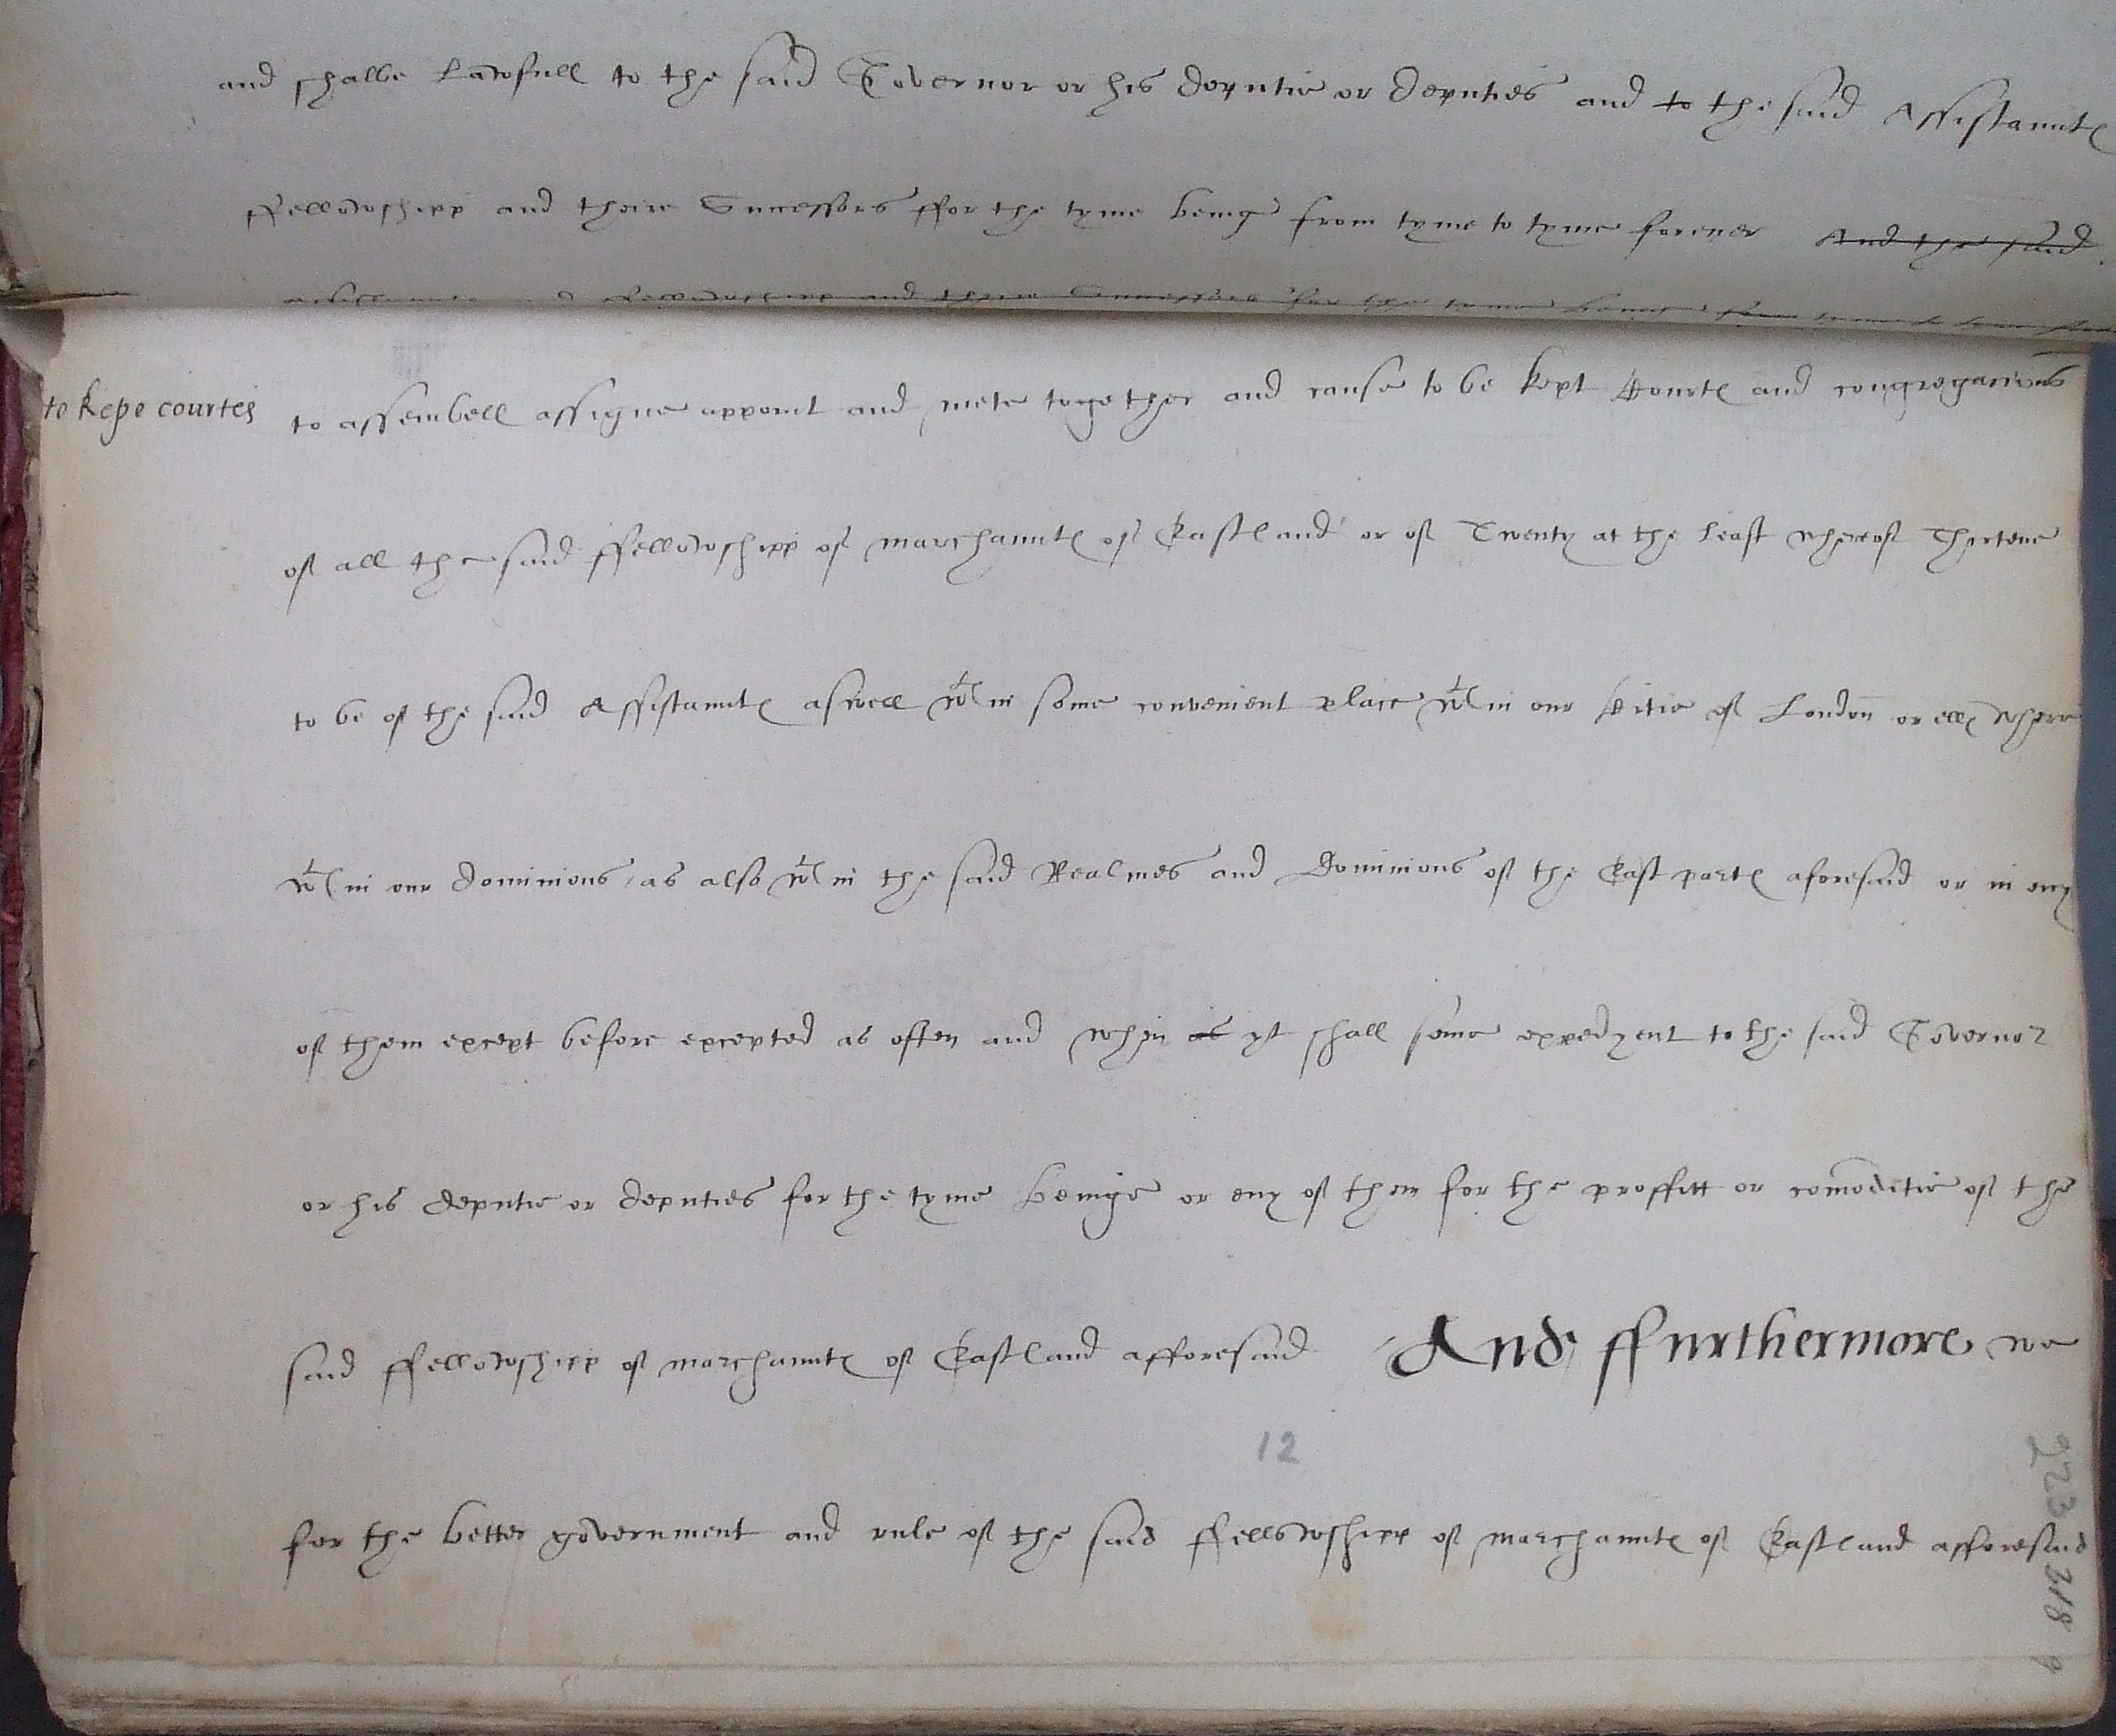 and shalbe Lawfull to the said Governor or his deputie or deputies and to the said Assistauntes
ffellowshipp and theire Successors ffor the tyme being from tyme to tyme forever And the said
ffellowshipp and theire Successors for the tyme being from tyme to tyme
to kepe courtes
to assembell assigne appoint and mete together and cause to be kept Courtes and congregacions
of all the said ffellowshipp of marchauntes of Eastland or of Twenty at the Least whereof Thirtene
to be of the said Assistauntes aswell wth in some convenient place wth in our Citie of London or elles where
wth in our dominions as also wth in the said Realmes and Dominions of the East partes aforesaid or in eny
of them except before excepted as often and when as yt shall seme expedyent to the said Governor
or his deputie or deputies for the tyme beinge or eny of them for the proffitt or comoditie of the
said ffellowshipp of marchauntes of Eastland afforesaid And ffurthermore we
12
for the better government and rule of the said ffellowshipp of marchauntes of Eastland afforesaid
223 218 9